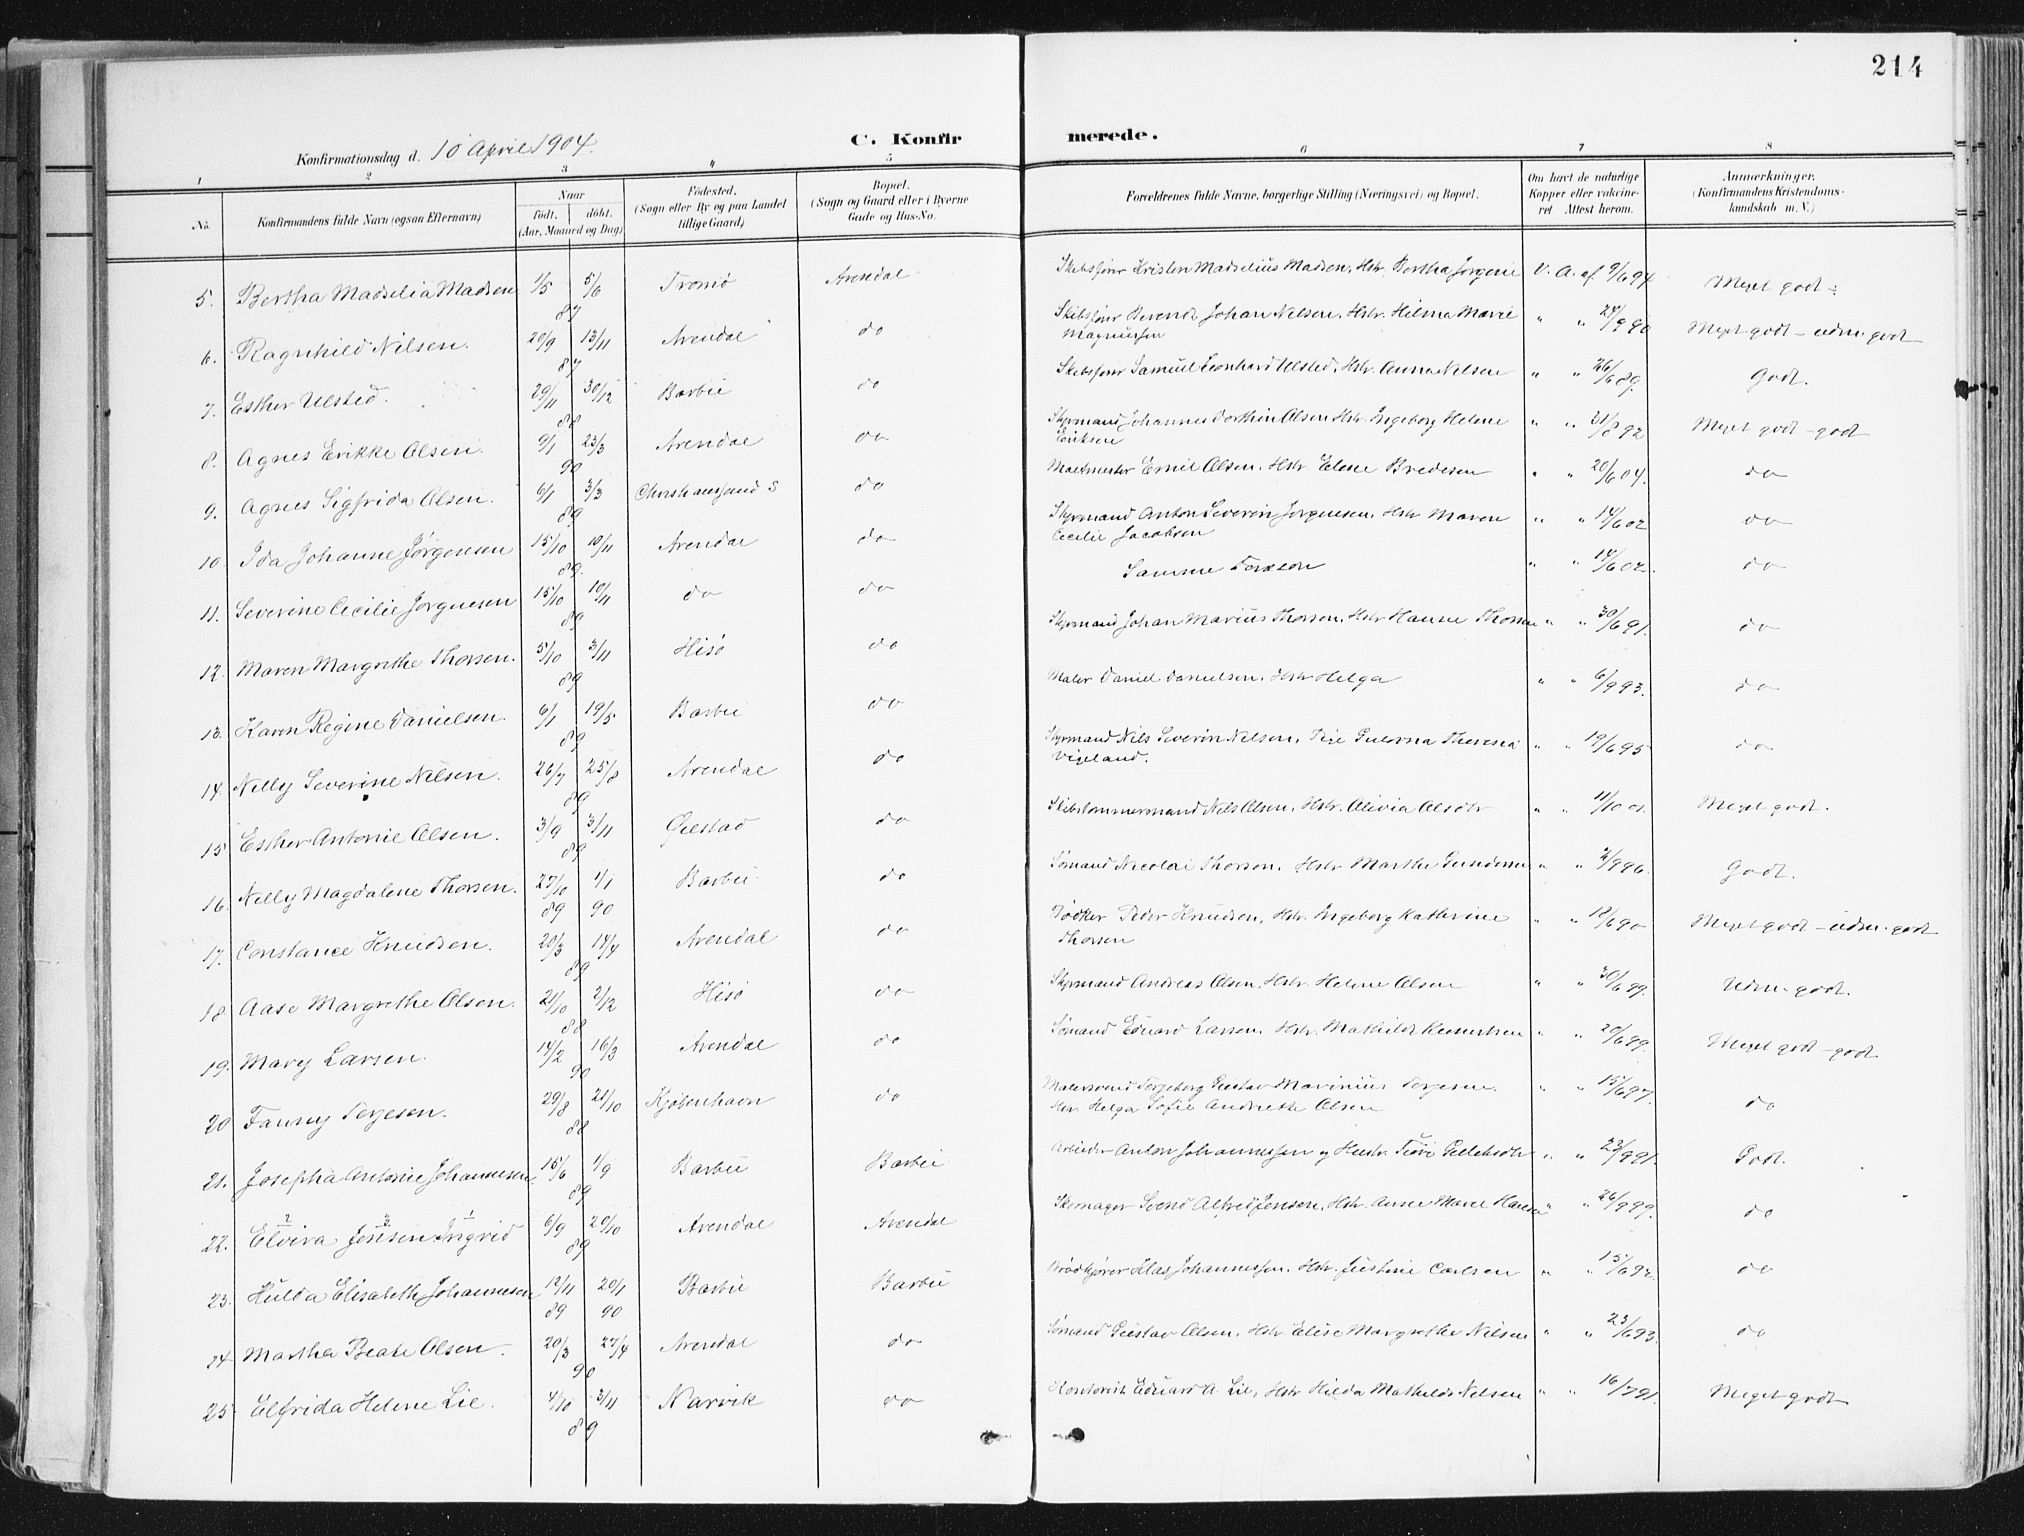 214
C. Konfirmerede.
Konfirmationsdag d. 10 April 1904.
1 2 3 4 5 6 7 8
No. Konfirmandens fulde Navn (ogsaa Efternavn) Naar født. døbt. (Aar, Maaned og Dag) Fødested. (Sogn eller By og paa Landet tillige Gaard) Bopæl. (Sogn og Gaard eller i Byerne Gade og Hus-No. Forældrenes fulde Navne, borgerlige Stilling (Næringsvei) og Bopæl. Om havt de naturlige Kopper eller vaccineret Attest herom. Anmærkninger. (Konfirmandens Kristendomskundskab m. V.)
5. Bertha Madselia Madsen 1/5 5/6 87 Tromø Arendal Skibsfører Kristen Madselius Madsen, Hstr. Bertha Jørgine V. A. af 9/6 94 Meget godt ÷
6. Ragnhild Nilsen. 20/9 13/11 87 Arendal do Skibsfører Berendt Johan Nilsen, Hstr. Hilma Marie Magnussen " " 24/9 90 Meget godt - udm. godt
7. Esther Ulsted. 29/11 30/12 88 Barbu do Skibsfører Samuel Leonhard Ulsted, Hstr. Anna Nilsen " " 26/6 89. Godt.
8. Agnes Erikke Olsen. 9/1 23/3 90 Arendal do Styrmand Johannes Olsen, Hstr. Ingeborg Helene Eriksen " " 21/8 92 Meget godt - godt
9. Agnes Sigfrida Olsen. 6/1 3/3 89 Christianssand S do Emil Olsen, Hstr. Elene Bredesen " " 20/6 04. do
10. Ida Johanne Jørgensen 15/10 10/11 89. Arendal do Styrmand Anton Severin Jørgensen, Hstr. Maren Cecilie Jacobsen " " 14/6 02 do
11. Severine Cecilie Jørgensen 15/10 10/11 89 do do Samme " " 14/6 02. do
12. Maren Margrethe Thorsen. 5/10 3/11 89 Hisø do Styrmand Johan Marius Thorsen, Hstr. Hanne Thorsen " " 30/6 91. do
13. Karen Regine Danielsen. 6/1 19/5 89 Barbu do Maler Daniel Danielsen, Hstr. Helga " " 6/9 93. do
14. Nelly Severine Nilsen. 26/7 25/8 89 Arendal do Styrmand Nils Severin Nilsen, Theresia Vigeland. " " 19/6 95 do
15 Esther Antonie Olsen. 3/9 3/11 89 Gjestad do Skibstømmermand Nils Olsen, Hstr. Olivia Olsdtr " " 11/10 01. Meget godt.
16. Nelly Magdalene Thorsen. 27/10 1/1 89 90 Barbu. do Sømand Nicolai Thorsen, Hstr. Marthe Gundersen " " 2/9 96. Godt.
17. Constance Knudsen. 20/3 14/4 89 Arendal do Bødker Peder Knudsen, Hstr. Ingeborg Kathrine Thorsen " " 18/6 90 Meget godt - udm. godt
18. Aase Margrethe Olsen. 21/10 2/12 88 Hisø do Styrmand Andreas Olsen, Hstr. Helene Olsen " " 30/6 99. Udm. godt.
19. Mary Larsen. 14/2 16/3 90 Arendal do Sømand Eduard Larsen, Hstr. Mathilde " " 20/6 99. Meget godt - godt
20 Fanny Terjesen. 29/8 21/10 88 Kjøbenhavn do Malersvend Gustav Marinius Terjesen. Hstr. Helga Sofie Andrette Olsen " " 15/6 97. do
21. Josepha Antonie Johannesen. 15/6 1/9 89 Barbu Barbu Arbeider Anton Johannessen og Hustr. " " 23/9 91. Godt.
22. Elvira Jensen Ingrid 6/9 20/10 89 Arendal Arendal Skomager Svend Alfred Jensen, Hstr. Anne Marie Hansen " " 26/9 99. do
23. Hulda Elisabeth Johannesen 12/11 20/1 89 90 Barbu Barbu Klas Johannessen. Hstr. Justine Carlsen " " 15/6 92. do
24 Martha Beate Olsen. 20/3 27/4 90 Arendal do Sømand Gustav Olsen, Hstr. Elise Margrethe Nilsen " " 23/6 93. do
25 Elfrida Helene Lie. 4/10 3/11 89 Narvik do Kontorist Eduard A. Lie, Hstr Hilda Mathilde Nilsen " " 16/7 91. Meget godt